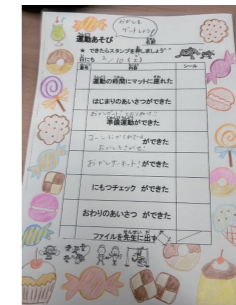 おかしを
ゲットしよう!
運動あそび
名前
★ できたらスタンプを押しましょう
日にち 2/10(土)
番号 内容 シール
運動の時間にマットに座れた
はじまりのあいさつができた
準備運動ができた
ができた
おかしゲット!ができた
にもつチェック ができた
おわりのあいさつ ができた
ファイルを先生に出す